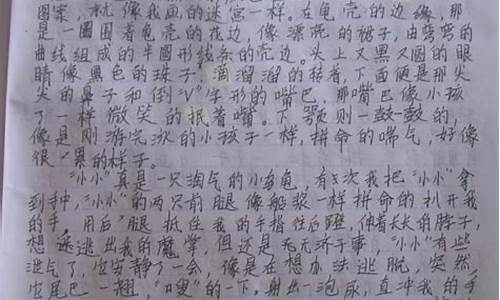 图案,就像我画的迷宫一样。在龟壳的边缘,那
是一圈围着龟壳的花边,像漂亮的裙子,由弯弯的
曲线组成的半圆形线条的壳边。头上又黑又圆的眼
睛像黑色的珠子,滴溜溜的转着,下面便是那尖
尖的鼻子和倒“V”字形的嘴巴,那嘴巴像小孩
了一样微笑的抿着嘴。下颚则一鼓一鼓的,
像是刚游完泳的小孩子一样,拼命的喘气,好像
很累的样子。
“小小”真是一只淘气的小乌龟,有一次我把“小小”拿
到手中,“小小”的两只前腿像船桨一样拼命的扒开我
的手,用后腿抵住我的手指往后蹬,伸着长长的脖子,
想逃出我的魔掌,但还是无济于事。“小小”有些
泄气了,它安静了一会,像是在想办法逃脱,突然,
它尾巴一翘,“嗖”的一下,射出一泡尿,直冲我的手